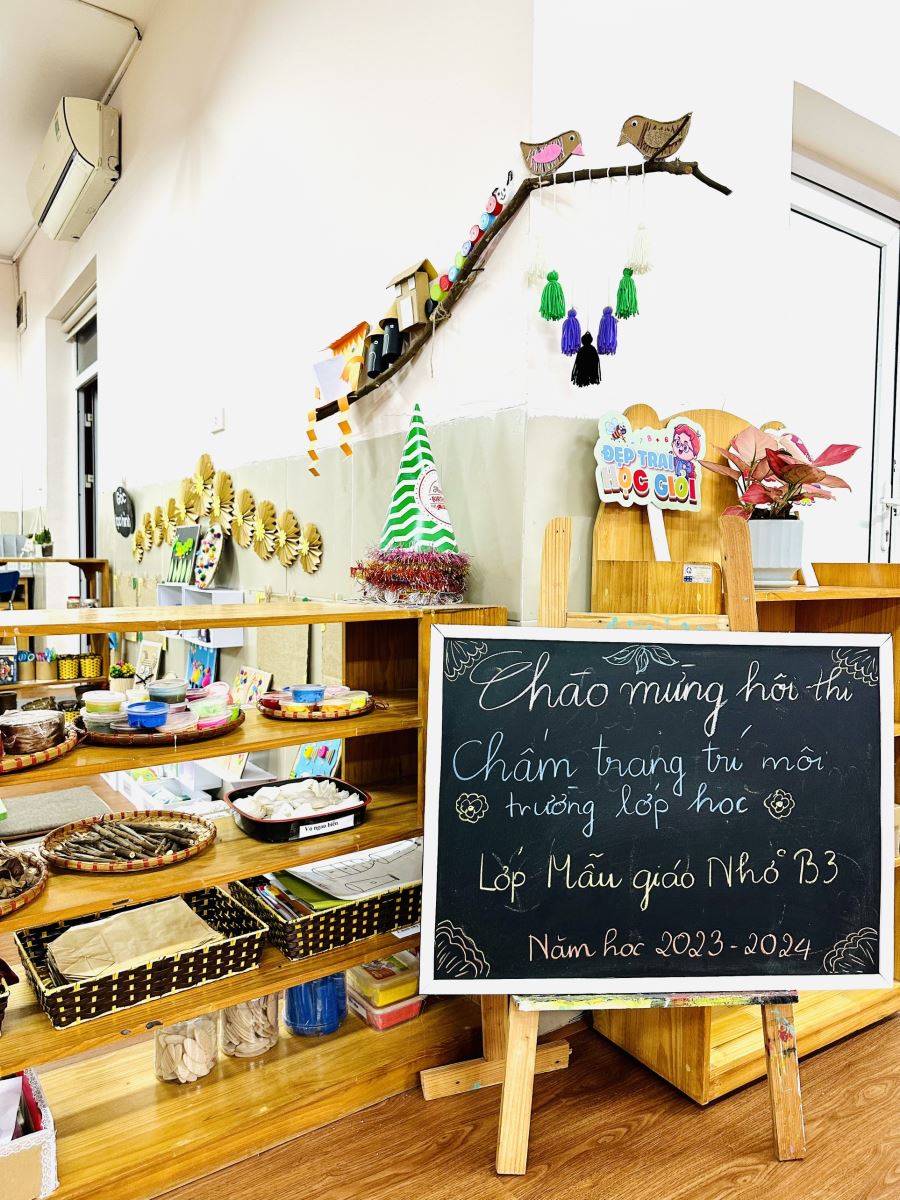 ĐẸP TRAI
HỌC GIỎI
Chào mừng hội thi
Chấm trang trí môi
trường lớp học
Lớp Mẫu giáo Nhỡ B3
Năm học 2023-2024
Vỏ ngao biển
GÓC